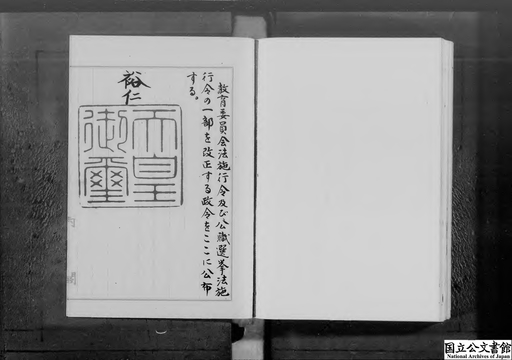 教育委員会法施行令及び公職選挙法施
行令の一部を改正する政令をここに公布
する。
裕仁
天皇
御璽
国立公文書館
National Archives of Japan